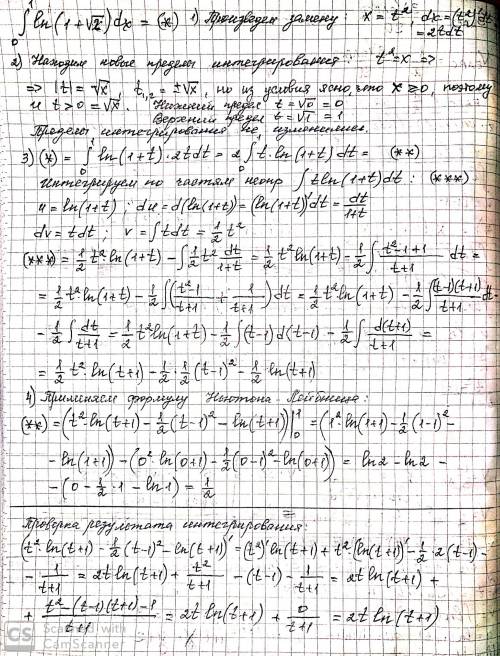 ∫₀¹ ln(1+√x)dx = (*) 1) Произведем замену x = t², dx = (t²)'dt
= 2tdt
2) Находим новые пределы интегрирования: t² = x ⇒
⇒ |t| = √x, t₁,₂ = ±√x, но из условия ясно, что x ≥ 0, поэтому
и t > 0 = √x. Нижний предел t = √0 = 0
Верхний предел t = √1 = 1
Пределы интегрирования не изменились.
3) (*) = ∫₀¹ ln(1+t)·2tdt = 2∫₀¹ t·ln(1+t)dt = (**)
Интегрируем по частям неопр ∫tln(1+t)dt: (***)
u = ln(1+t); du = d(ln(1+t)) = (ln(1+t))'dt = dt/(1+t)
dv = tdt; v = ∫tdt = ½t²
(***) = ½t²ln(1+t) - ∫½t² dt/(1+t) = ½t²ln(1+t) - ½∫(t²-1+1)/(t+1) dt =
= ½t²ln(1+t) - ½∫((t²-1)/(t+1) + 1/(t+1))dt = ½t²ln(1+t) - ½∫(t-1)(t+1)/(t+1) dt
- ½∫dt/(t+1) = ½t²ln(1+t) - ½∫(t-1)d(t-1) - ½∫d(t+1)/(t+1) =
= ½t²·ln(t+1) - ½·½(t-1)² - ½·ln(t+1)
4) Применяем формулу Ньютона-Лейбница:
(**) = (t²·ln(t+1) - ½(t-1)² - ln(t+1))|₀¹ = (1²·ln(1+1) - ½(1-1)² -
- ln(1+1)) - (0²·ln(0+1) - ½(0-1)² - ln(0+1)) = ln2 - ln2 -
- (0 - ½·1 - ln1) = ½
Проверка результата интегрирования:
(t²·ln(t+1) - ½(t-1)² - ln(t+1))' = (t²)'ln(t+1) + t²(ln(t+1))' - ½·2(t-1) -
- 1/(t+1) = 2tln(t+1) + t²/(t+1) - (t-1) - 1/(t+1) = 2tln(t+1) +
+ (t²-(t-1)(t+1)-1)/(t+1) = 2tln(t+1) + 0/(t+1) = 2tln(t+1)
CS Scanned with
CamScanner